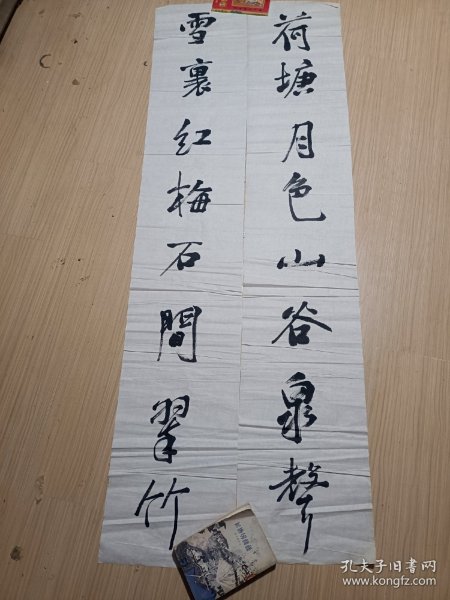 荷塘月色山谷泉聲
雪裏紅梅石間翠竹
孔夫子旧书网
www.kongfz.com